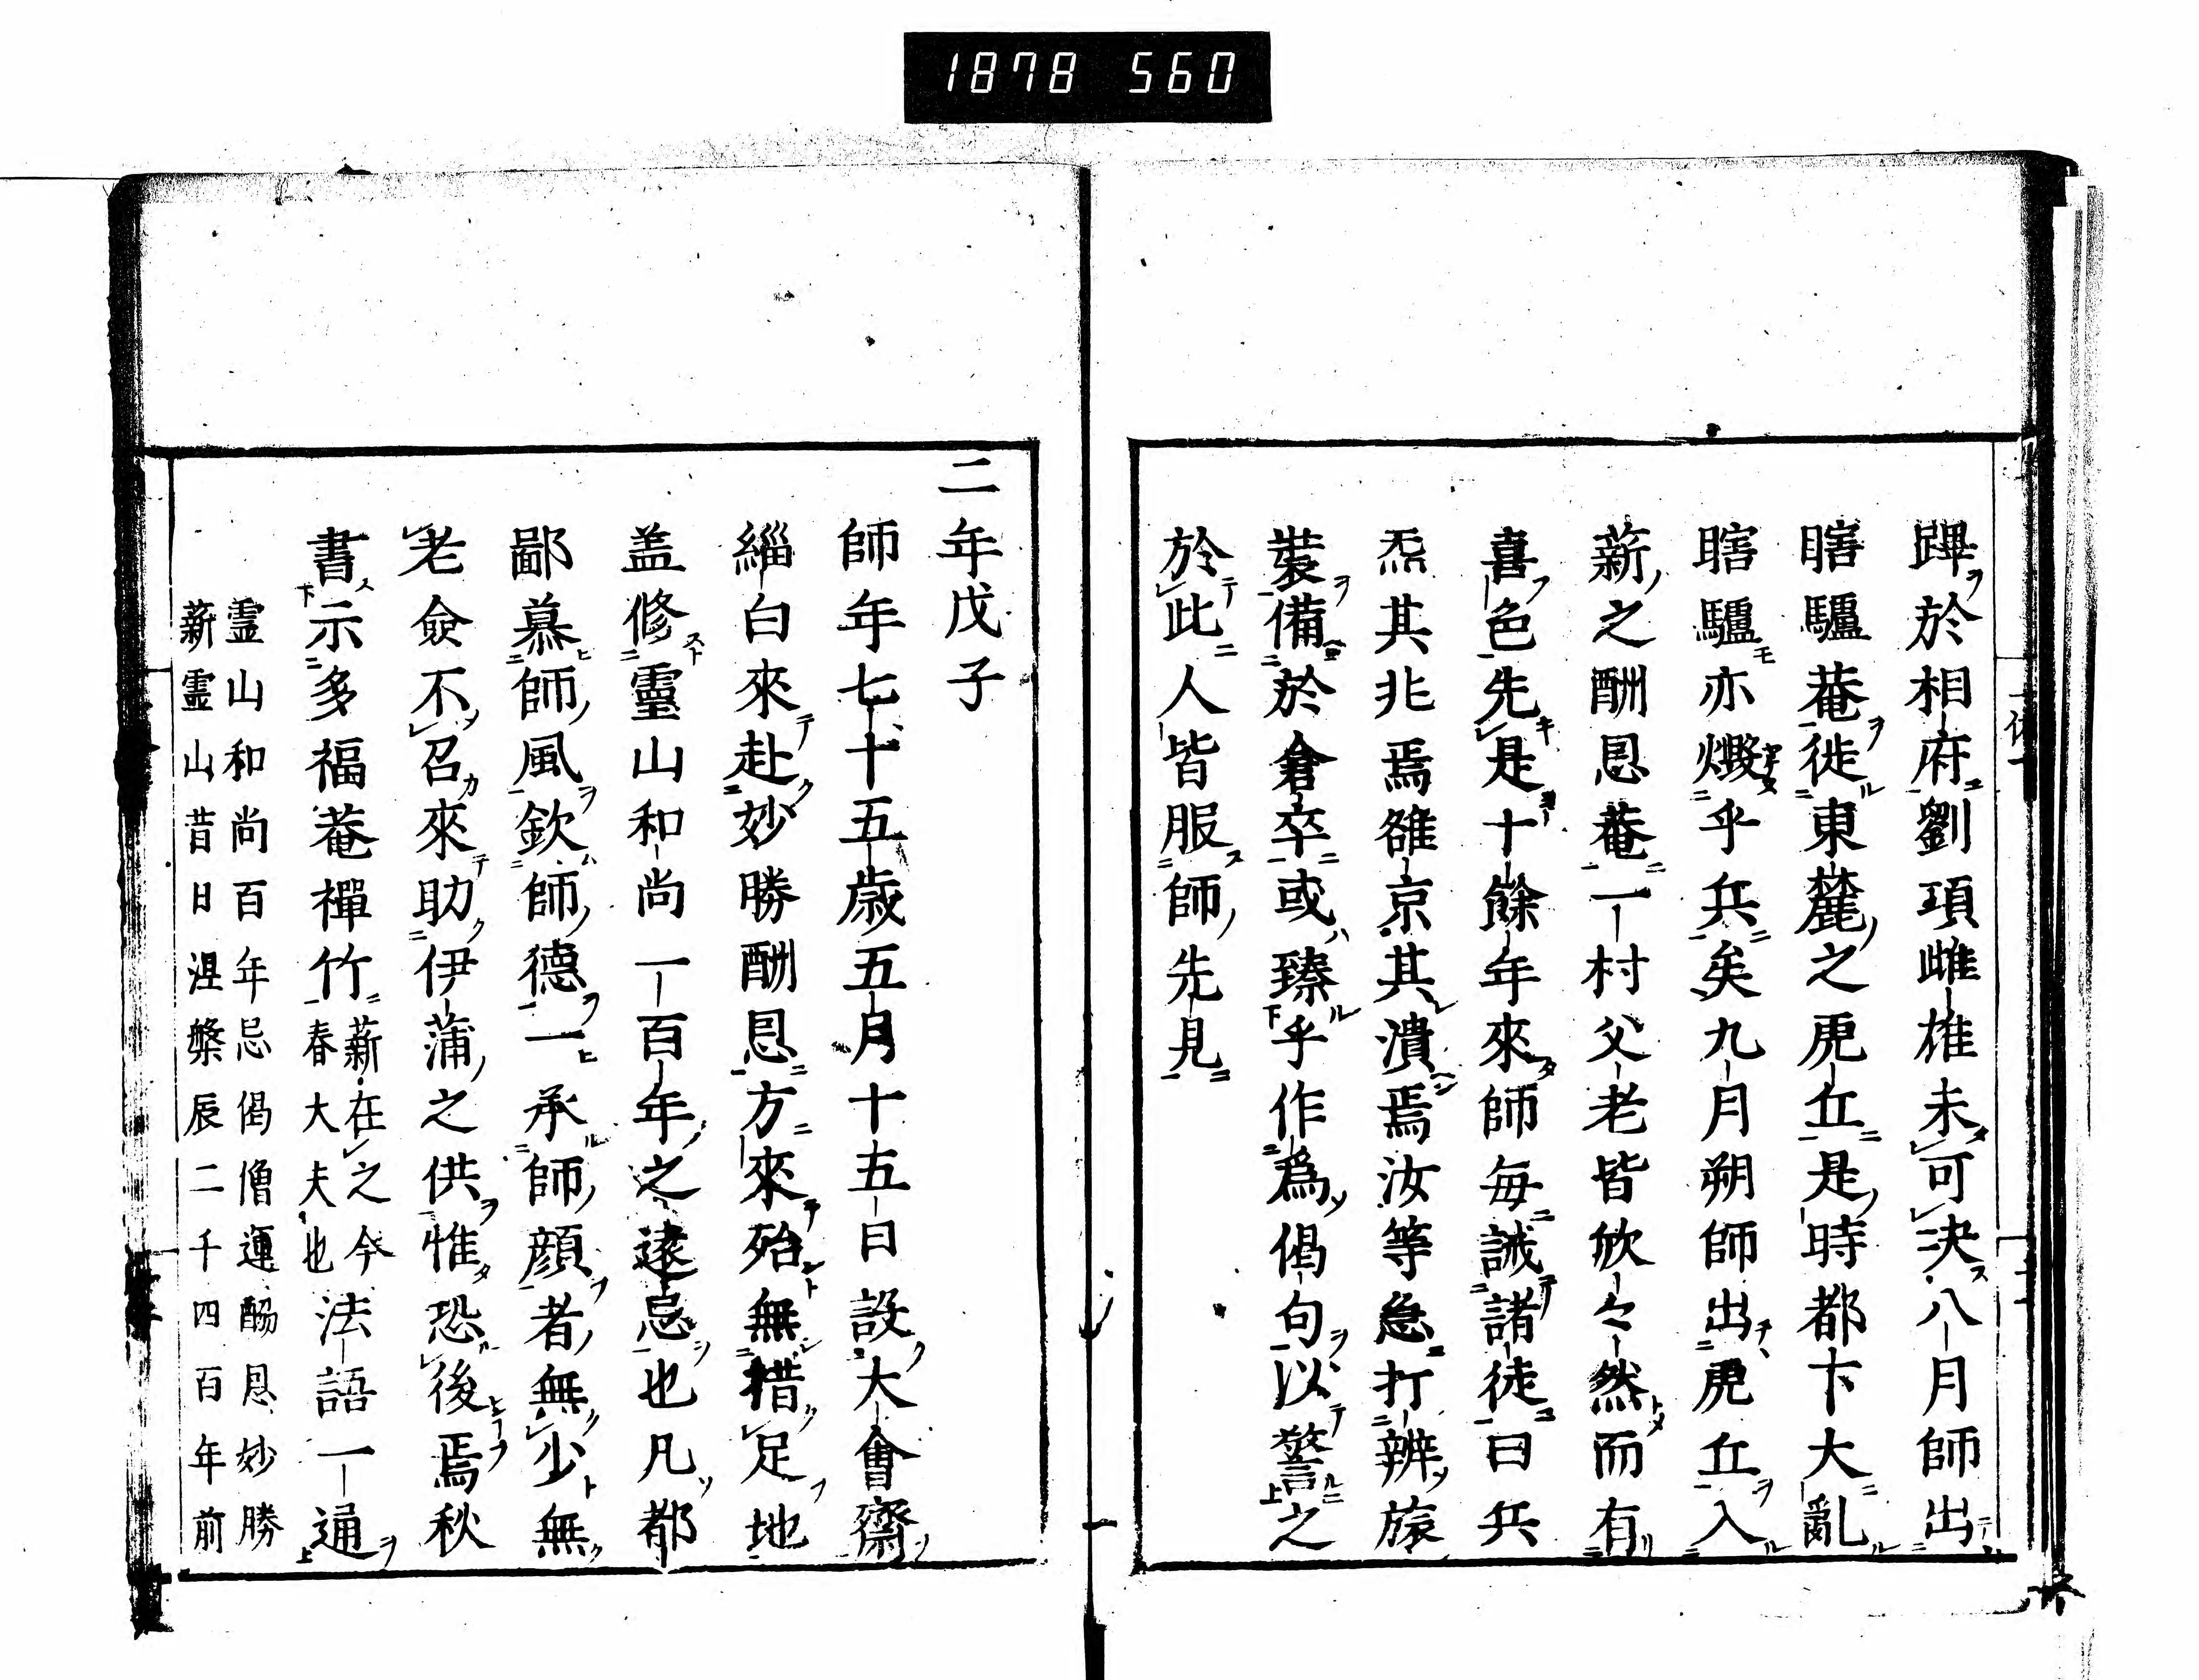 1878 560
蹕於相府劉項雌雄未可決八月師出
瞎驢菴徙東麓之虎丘是時都下大亂
瞎驢亦燬乎兵矣九月朔師出虎丘入
薪之酬恩菴一村父老皆欣々然而有
喜色先是十餘年來師每誡諸徒曰兵
炁其兆焉雒京其潰焉汝等急打辨旅
裝備於倉卒或臻乎作為偈句以警之
於此人皆服師先見
二年戊子
師年七十五歲五月十五日設大會齋
緇白來赴妙勝酬恩方來殆無措足地
盖修靈山和尚一百年之遠忌也凡都
鄙慕師風欽師德一承師顔者無少無
老僉不召來助伊蒲之供惟恐後焉秋
書示多福菴禪竹薪在之今春大夫也法語一通
霊山和尚百年忌偈僧運酬恩妙勝
薪霊山昔日涅槃辰二千四百年前